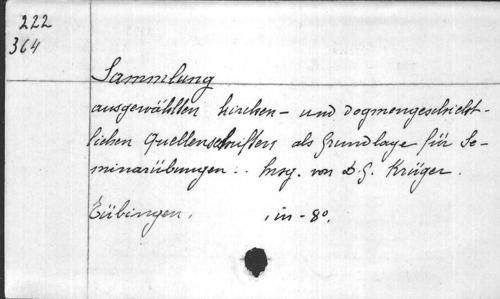 222
364
Sammlung
ausgewählten kirchen- und dogmengeschicht-
lichen Quellenschriften als Grundlage für Se-
minarübungen.. hrsg. von D. G. Krüger.
Tübingen, , in-8°.